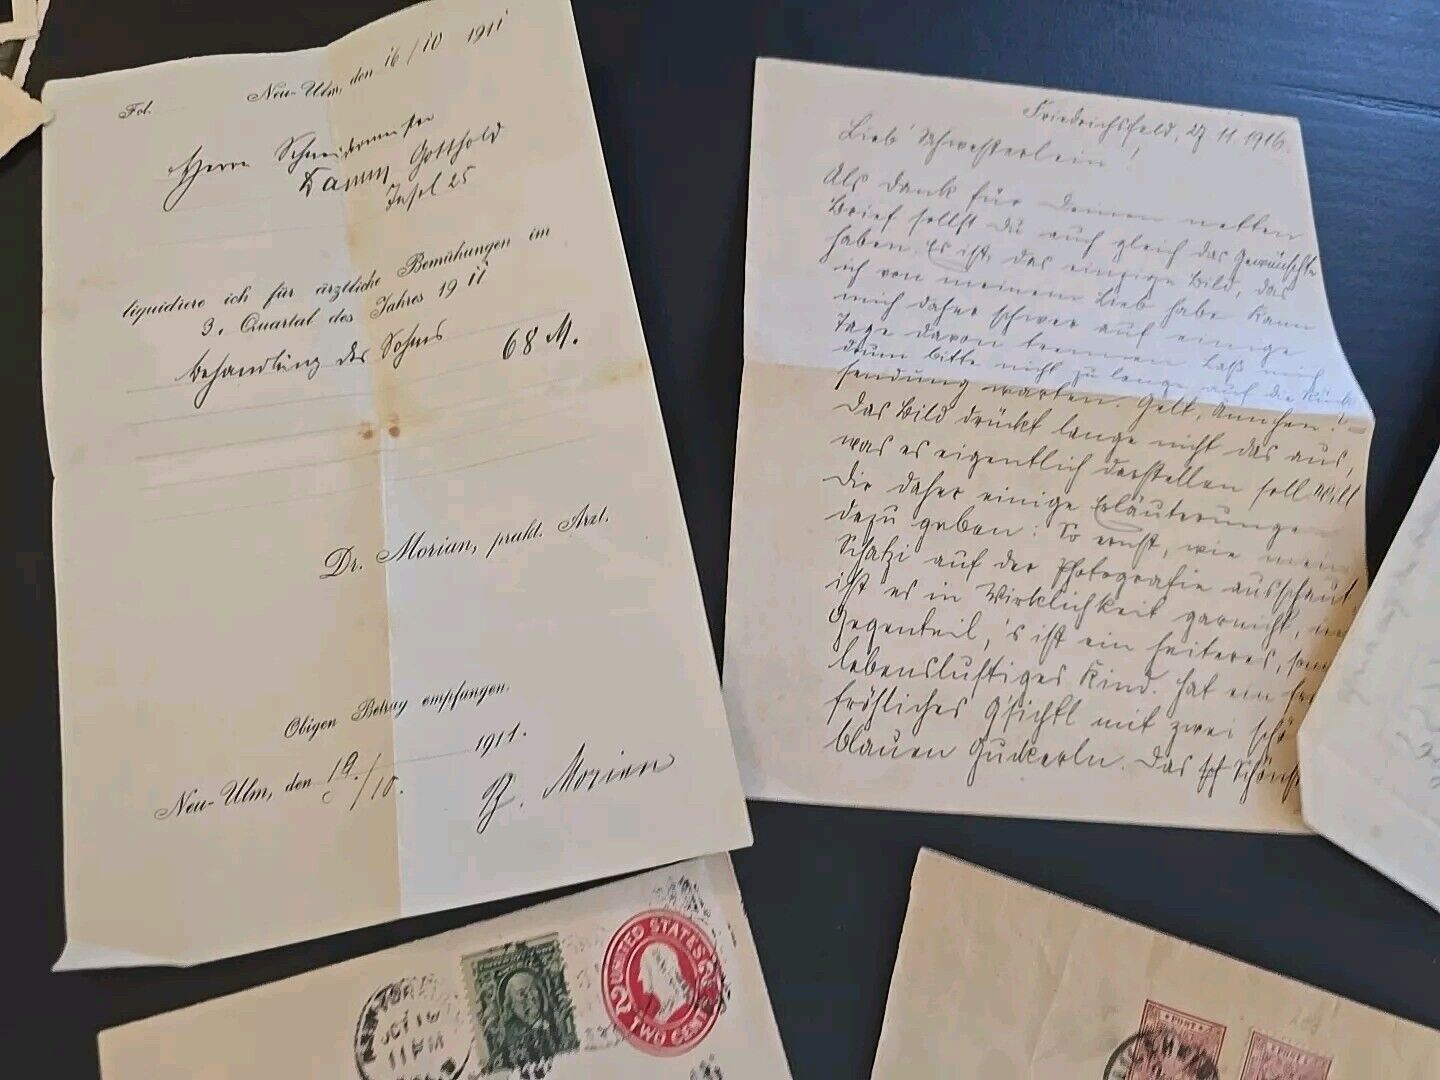 Fol.
Neu-Ulm, den 16/10 1911
Herrn Schneidermeister
Damm, Gotthold
Insel 25
liquidiere ich für ärztliche Bemühungen im
3. Quartal des Jahres 1911
Behandlung des Sohnes 68 M.
Dr. Morian, prakt. Arzt.
Obigen Betrag empfangen.
Neu-Ulm, den 19./10. 1911.
Morian
Friedrichsfeld, 27 11. 1916.
Lieb' Schwesterlein!
Als Dank für Deinen netten
Brief sollst Du auch gleich das Gewünschte
haben. Es ist, das einzige Bild, das
ich von meinem Lieb habe. Kann
mich daher schwer auf einige
Tage davon trennen. Laß mich
drum bitte nicht zu lange auf die Rück
sendung warten. Gelt, Ännchen?
Das Bild drückt lange nicht das aus,
was es eigentlich darstellen soll. Will
Dir daher einige Erläuterungen
dazu geben: So ernst, wie mein
Schatzi auf der Photografie ausschaut,
ist es in Wirklichkeit garnicht, im
Gegenteil, 's ist ein heiteres,
lebenslustiges Kind. Hat ein
fröhliches G'sichtl mit zwei
blauen Guckerln. Das
UNITED STATES
2 2
TWO CENTS
OCT 16
11 AM
POST